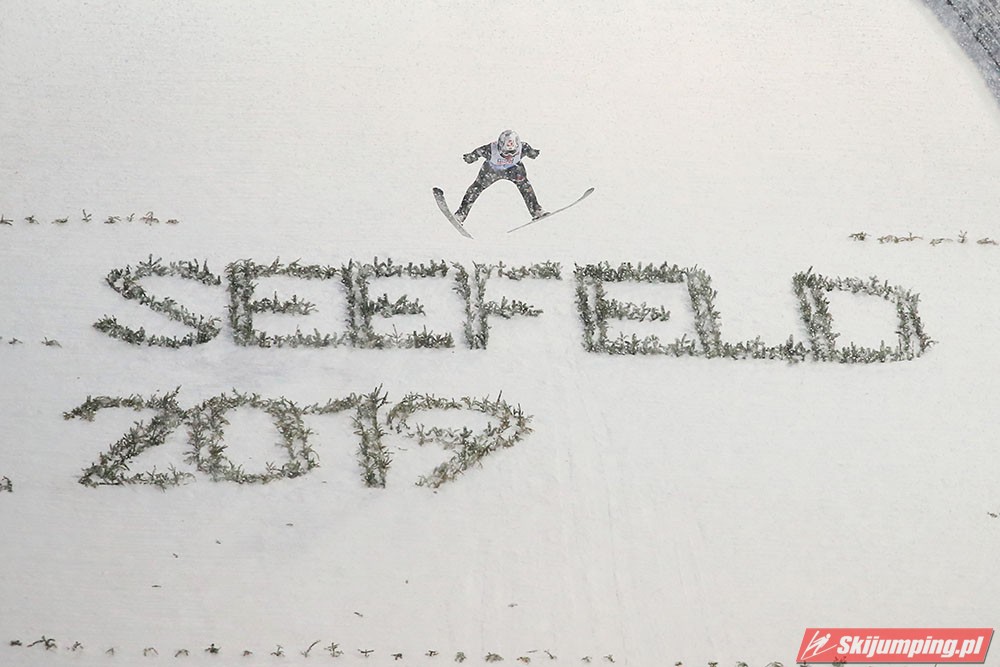 SEEFELD
2019
Skijumping.pl